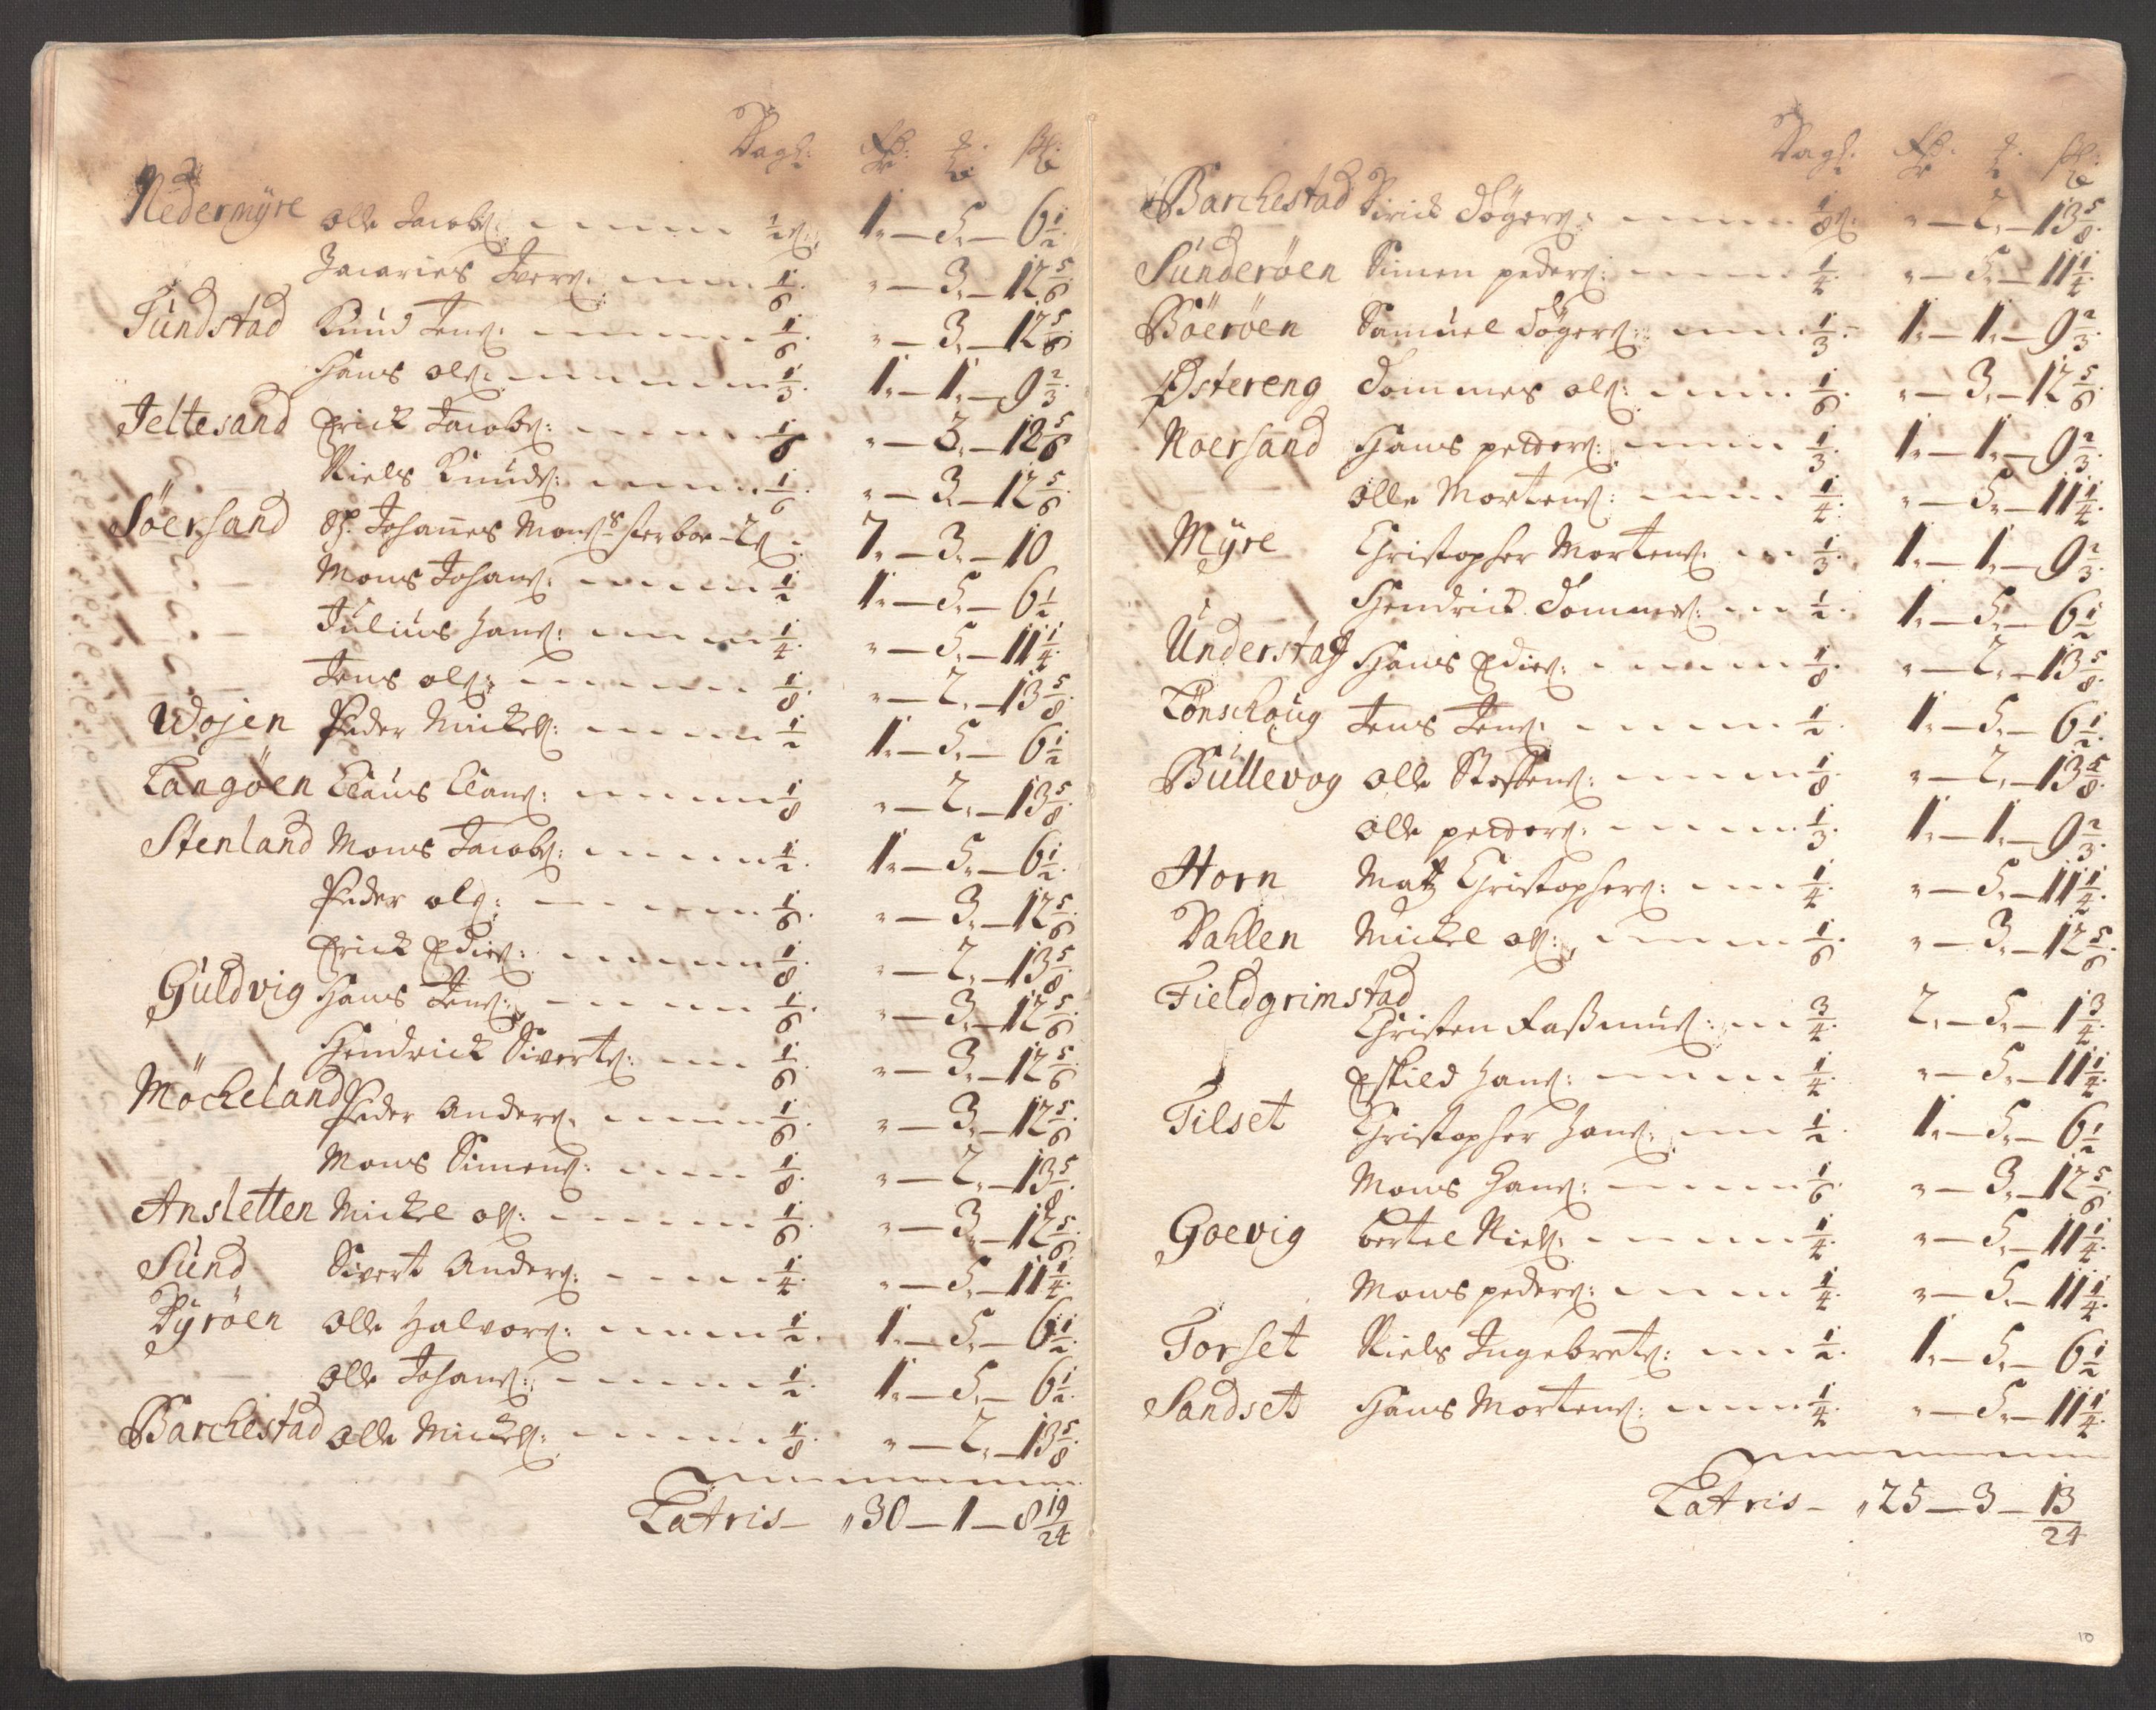 Wagh: Rdr: # skl:
Nedermÿre Olle Jacobs: ½ W: 1"—5"—6½
Zacaries Ivers: 1/6 "—3"—12 5/6
Tundstad Knud Jens: 1/6 "—3"—12 5/6
Hans Ols: 1/3 1"—1"—9 2/3
Jeltesand Erick Jacobs: 1/6 "—3"—12 5/6
Niels Knuds: 1/6 "—3—12 5/6
Söersand Sl. Johanes Mons: sterboe—2 W 7"—3"—10
Mons Johans: ½ 1"—5"—6½
Julius Hans: ¼ "—5"—11¼
Jens Ols: 1/8 "—2"—13 5/8
Wojen Peder Mickels: ½ 1"—5"—6½
Langöen Claus Clans: 1/8 "—2"—13 5/8
Stenland Mons Jacobs: ½ 1"—5"—6½
Peder Ols: 1/6 "—3"—12 5/6
Erick Edis: 1/8 "—2"—13 5/8
Guldvig Hans Jens: 1/6 "—3"—12 5/6
Hendrick Siverts: 1/6 "—3"—12 5/6
Möcheland Peder Anders: 1/6 "—3"—12 5/6
Mons Simens: 1/8 "—2"—13 5/8
Ansletten Mickel Ols: 1/6 "—3"—12 5/6
Sund Sivert Anders: ¼ "—5"—11¼
Dyröen Olle Halvors: ½ 1"—5"—6½
Olle Johans: ½ 1"—5"—6½
Barchestad Olle Mickels: 1/8 "—2"—13 5/8
Latris— "30—1—8 19/24
Wagh: Rdr: # skl:
Barchestad Dögers: 1/8 W: "—2"—13 5/8
Sunderöen Simen Peders: ¼ "—5"—11¼
Böeröen Samuel Dögers: 1/3 1"—1"—9 2/3
Østereng Tommes Ols: 1/6 "—3"—12 5/6
Noersand Hans Petters: 1/3 1"—1"—9 2/3
Olle Mortens: ¼ "—5"—11¼
Mÿre Christopher Mortens: 1/3 1"—1"—9 2/3
Hendrick Tommes: ½ 1"—5"—6½
Understad Hans Edis: 1/8 "—2"—13 5/8
Lönschoug Jens Jens: ½ 1"—5"—6½
Bullevog Olle Stoffens: 1/8 "—2"—13 5/8
Olle Petters: 1/3 1"—1"—9 2/3
Horn Matz Christophers: ¼ "—5"—11¼
Dahlen Mickel Ols: 1/6 "—3"—12 5/6
Fieldgrimstad
Christen Raßmus: ¾ 2"—5"—1¾
Eskild Hans: ¼ "—5"—11¼
Tilset Christopher Hans: ½ 1"—5"—6½
Mons Hans: 1/6 "—3"—12 5/6
Goevig Bertel Niels: ¼ "—5"—11¼
Mons Peders: ¼ "—5"—11¼
Torset Niels Ingebrets: ½ 1"—5"—6½
Sandset Hans Mortens: ¼ "—5"—11¼
Latris— "25—3—13/24
10